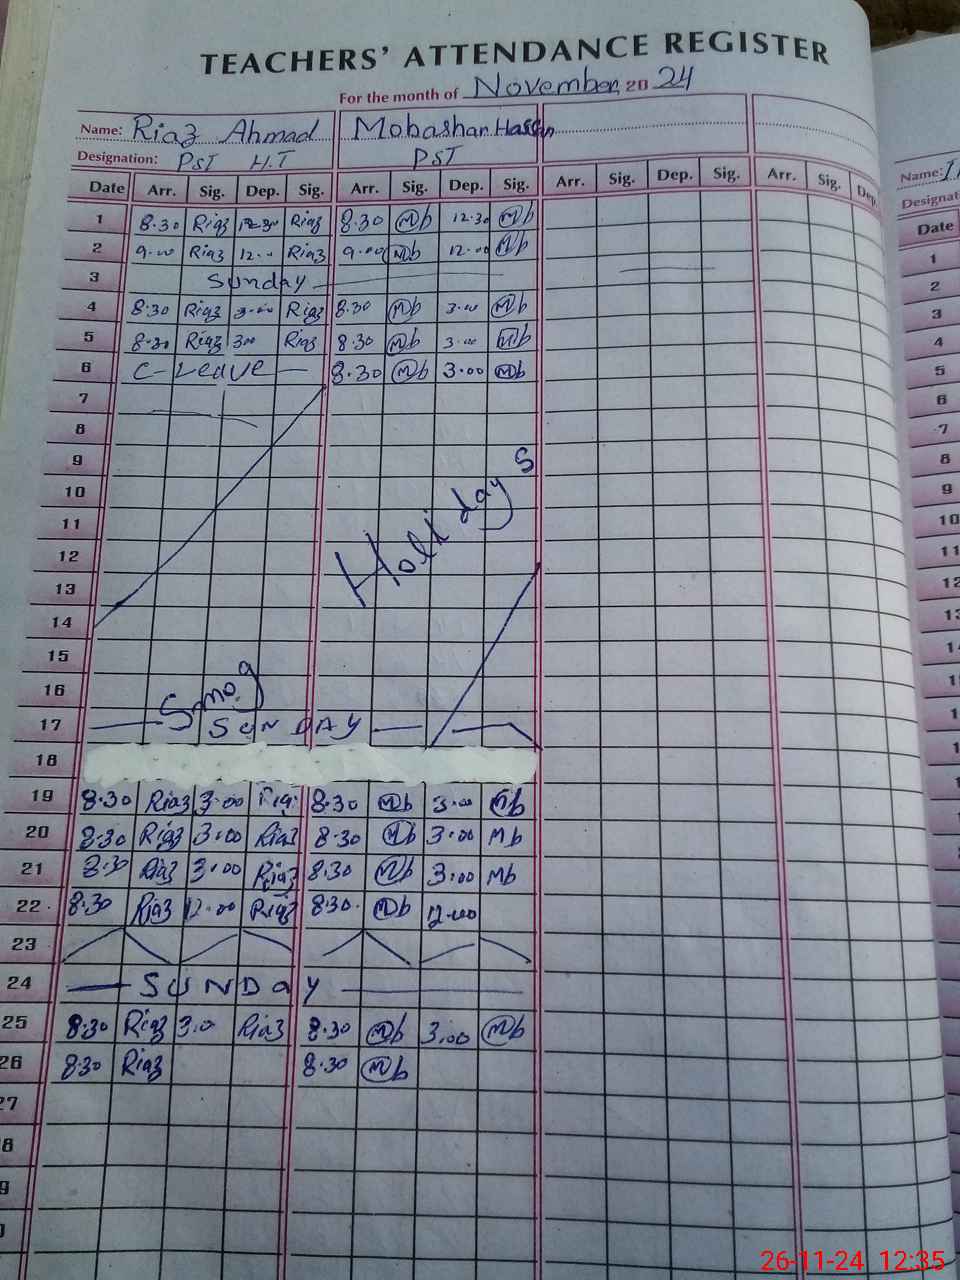 TEACHERS' ATTENDANCE REGISTER
For the month of November, 20 24
Name: Riaz Ahmad Mobashar Hassan
Designation: PST H.T PST
Date Arr. Sig. Dep. Sig. Arr. Sig. Dep. Sig. Arr. Sig. Dep. Sig. Arr. Sig. Dep.
1 8.30 Riaz 12.30 Riaz 8.30 Mb 12.30 Mb
2 9.00 Riaz 12.00 Riaz 9.00 Mb 12.00 Mb
3 Sunday
4 8.30 Riaz 3.00 Riaz 8.30 Mb 3.00 Mb
5 8.30 Riaz 3.00 Riaz 8.30 Mb 3.00 Mb
6 C-Leave 8.30 Mb 3.00 Mb
7
8
9
10
11
12
13
14
15
16
Smog Holidays
17 SUNDAY
18
19 8.30 Riaz 3.00 Riaz 8.30 Mb 3.00 Mb
20 8.30 Riaz 3.00 Riaz 8.30 Mb 3.00 Mb
21 8.30 Riaz 3.00 Riaz 8.30 Mb 3.00 Mb
22 8.30 Riaz 12.00 Riaz 8.30 Mb 12.00
23
24 SUNDay
25 8.30 Riaz 3.0 Riaz 8.30 Mb 3.00 Mb
26 8.30 Riaz 8.30 Mb
27
8
9
Name:
Date
1
2
3
4
5
6
7
8
9
10
11
12
13
14
26-11-24 12:35